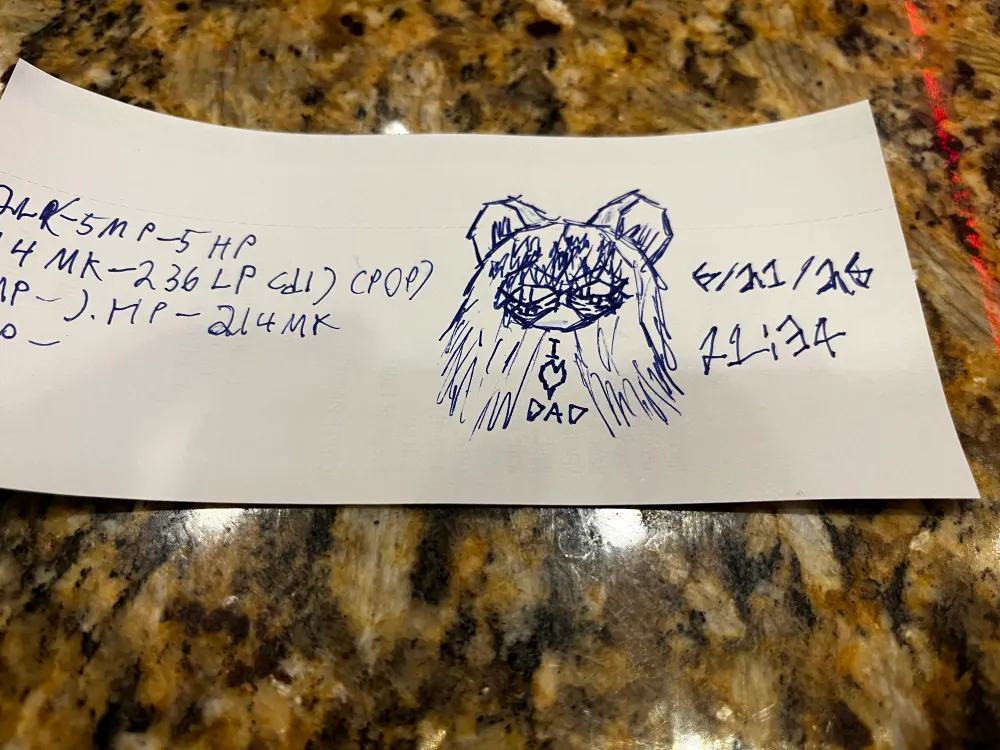 2LK-5MP-5HP
4 MK-236 LP (dl) (POP)
MP- J.HP-214MK
I
DAD
6/21/26
11:34